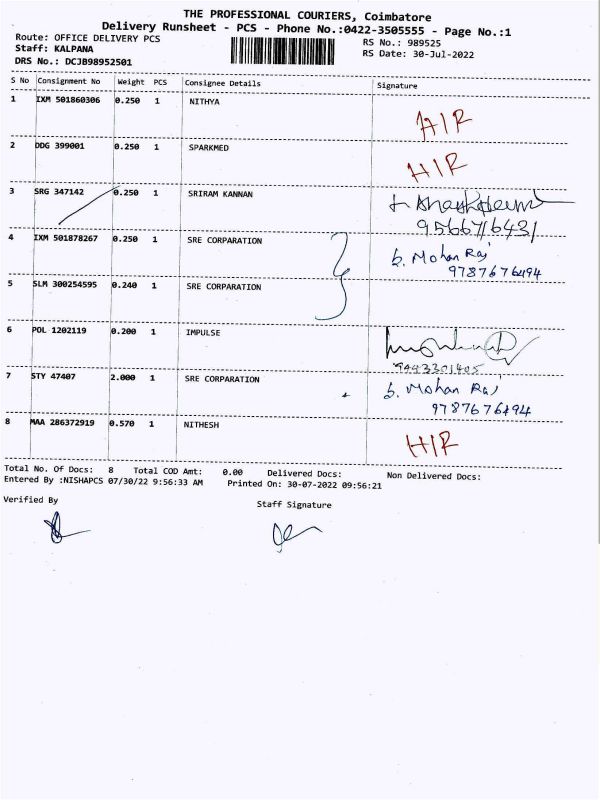 THE PROFESSIONAL COURIERS, Coimbatore
Delivery Runsheet - PCS - Phone No.:0422-3505555 - Page No.:1
Route: OFFICE DELIVERY PCS
RS No.: 989525
Staff: KALPANA
RS Date: 30-Jul-2022
DRS No.: DCJB98952501
S No Consignment No Weight PCS Consignee Details Signature
1 IXM 501860306 0.250 1 NITHYA
2 DDG 399001 0.250 1 SPARKMED
H/R
3 SRG 347142 0.250 1 SRIRAM KANNAN
9566716431
4 IXM 501878267 0.250 1 SRE CORPARATION b. Mohan Raj
9787676494
5 SLM 300254595 0.240 1 SRE CORPARATION
6 POL 1202119 0.200 1 IMPULSE
7 STY 47407 2.000 1 SRE CORPARATION b. Mohan Raj
9787676494
8 MAA 286372919 0.570 1 NITHESH H/R
Total No. Of Docs: 8 Total COD Amt: 0.00 Delivered Docs: Non Delivered Docs:
Entered By :NISHAPCS 07/30/22 9:56:33 AM Printed On: 30-07-2022 09:56:21
Verified By
Staff Signature